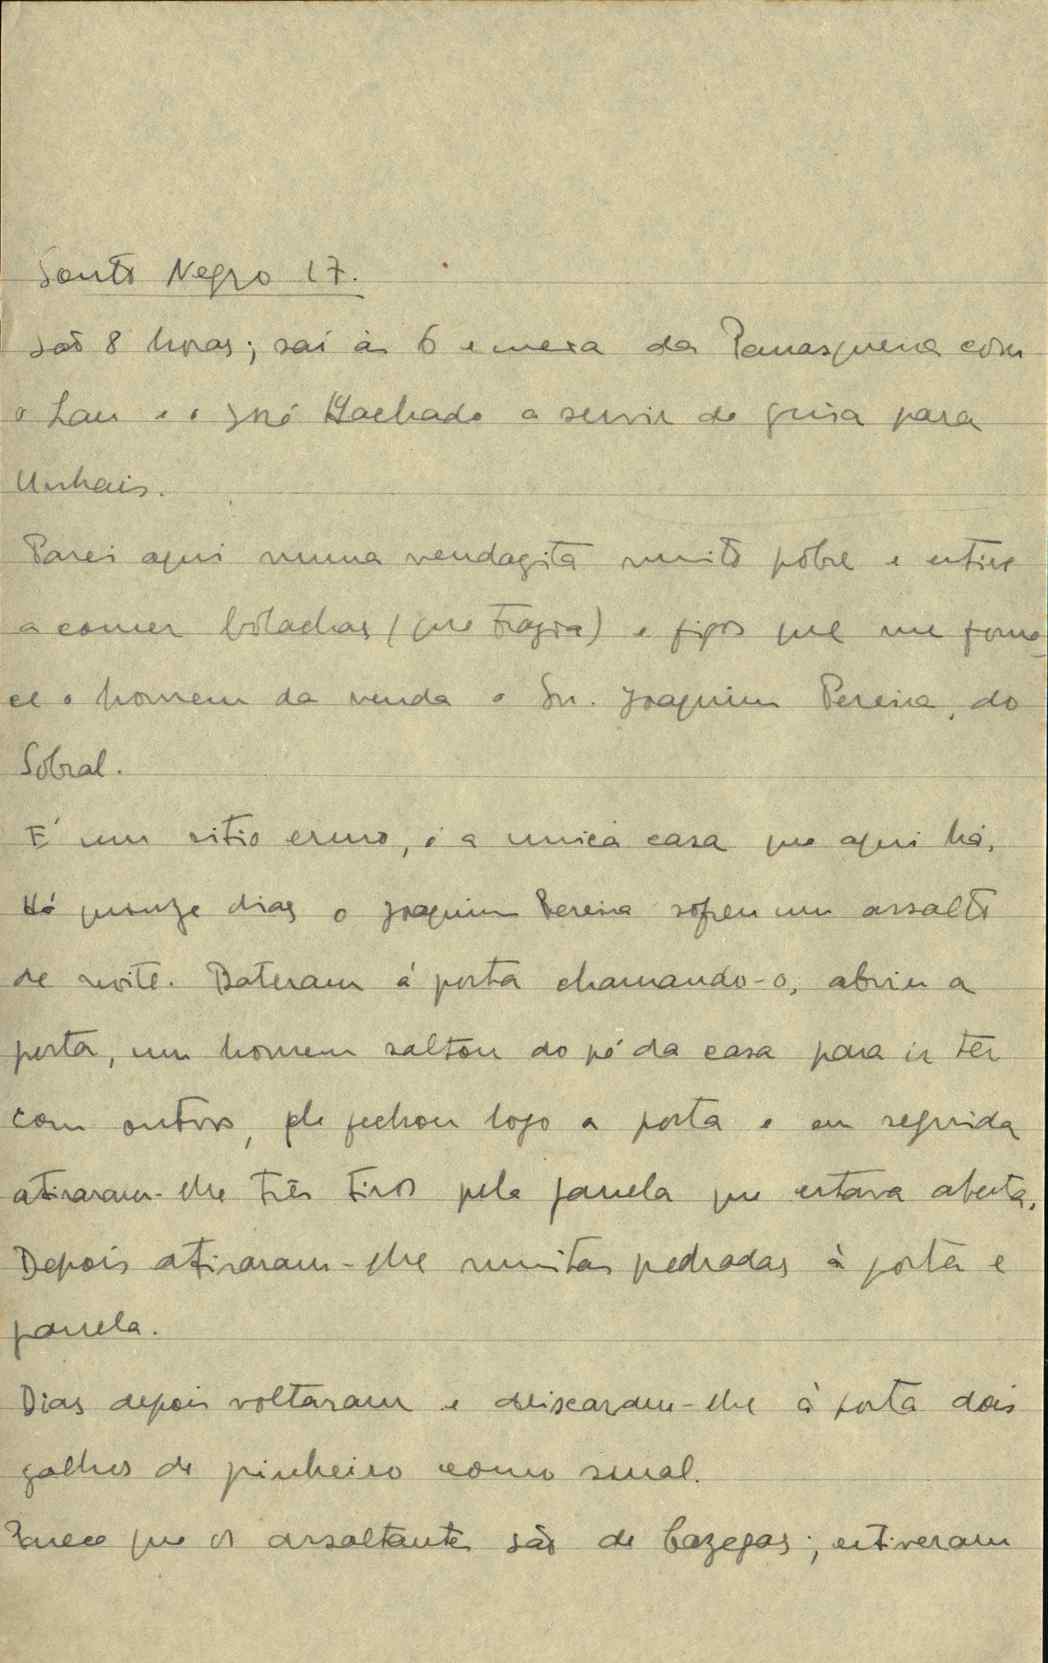 Souto Negro 17.
São 8 horas; saí às 6 e meia da Panasqueira com
o Lau e o José Machado a servir de guia para
Unhais.
Parei aqui numa vendazita muito pobre e estive
a comer bolachas (que trazia) e figos que me forne-
ce o homem da venda o Snr. Joaquim Pereira, do
Sobral.
É um sitio ermo, é a unica casa que aqui há.
Há quinze dias o Joaquim Pereira sofreu um assalto
de noite. Bateram á porta chamando-o, abriu a
porta, um homem saltou do pé da casa para ir ter
com outros, ele fechou logo a porta e em seguida
atiraram-lhe três tiros pela janela que estava aberta.
Depois atiraram-lhe muitas pedradas à porta e
janela.
Dias depois voltaram e deixaram-lhe à porta dois
galhos de pinheiro como sinal.
Parece que os assaltantes são de Cazegas; estiveram